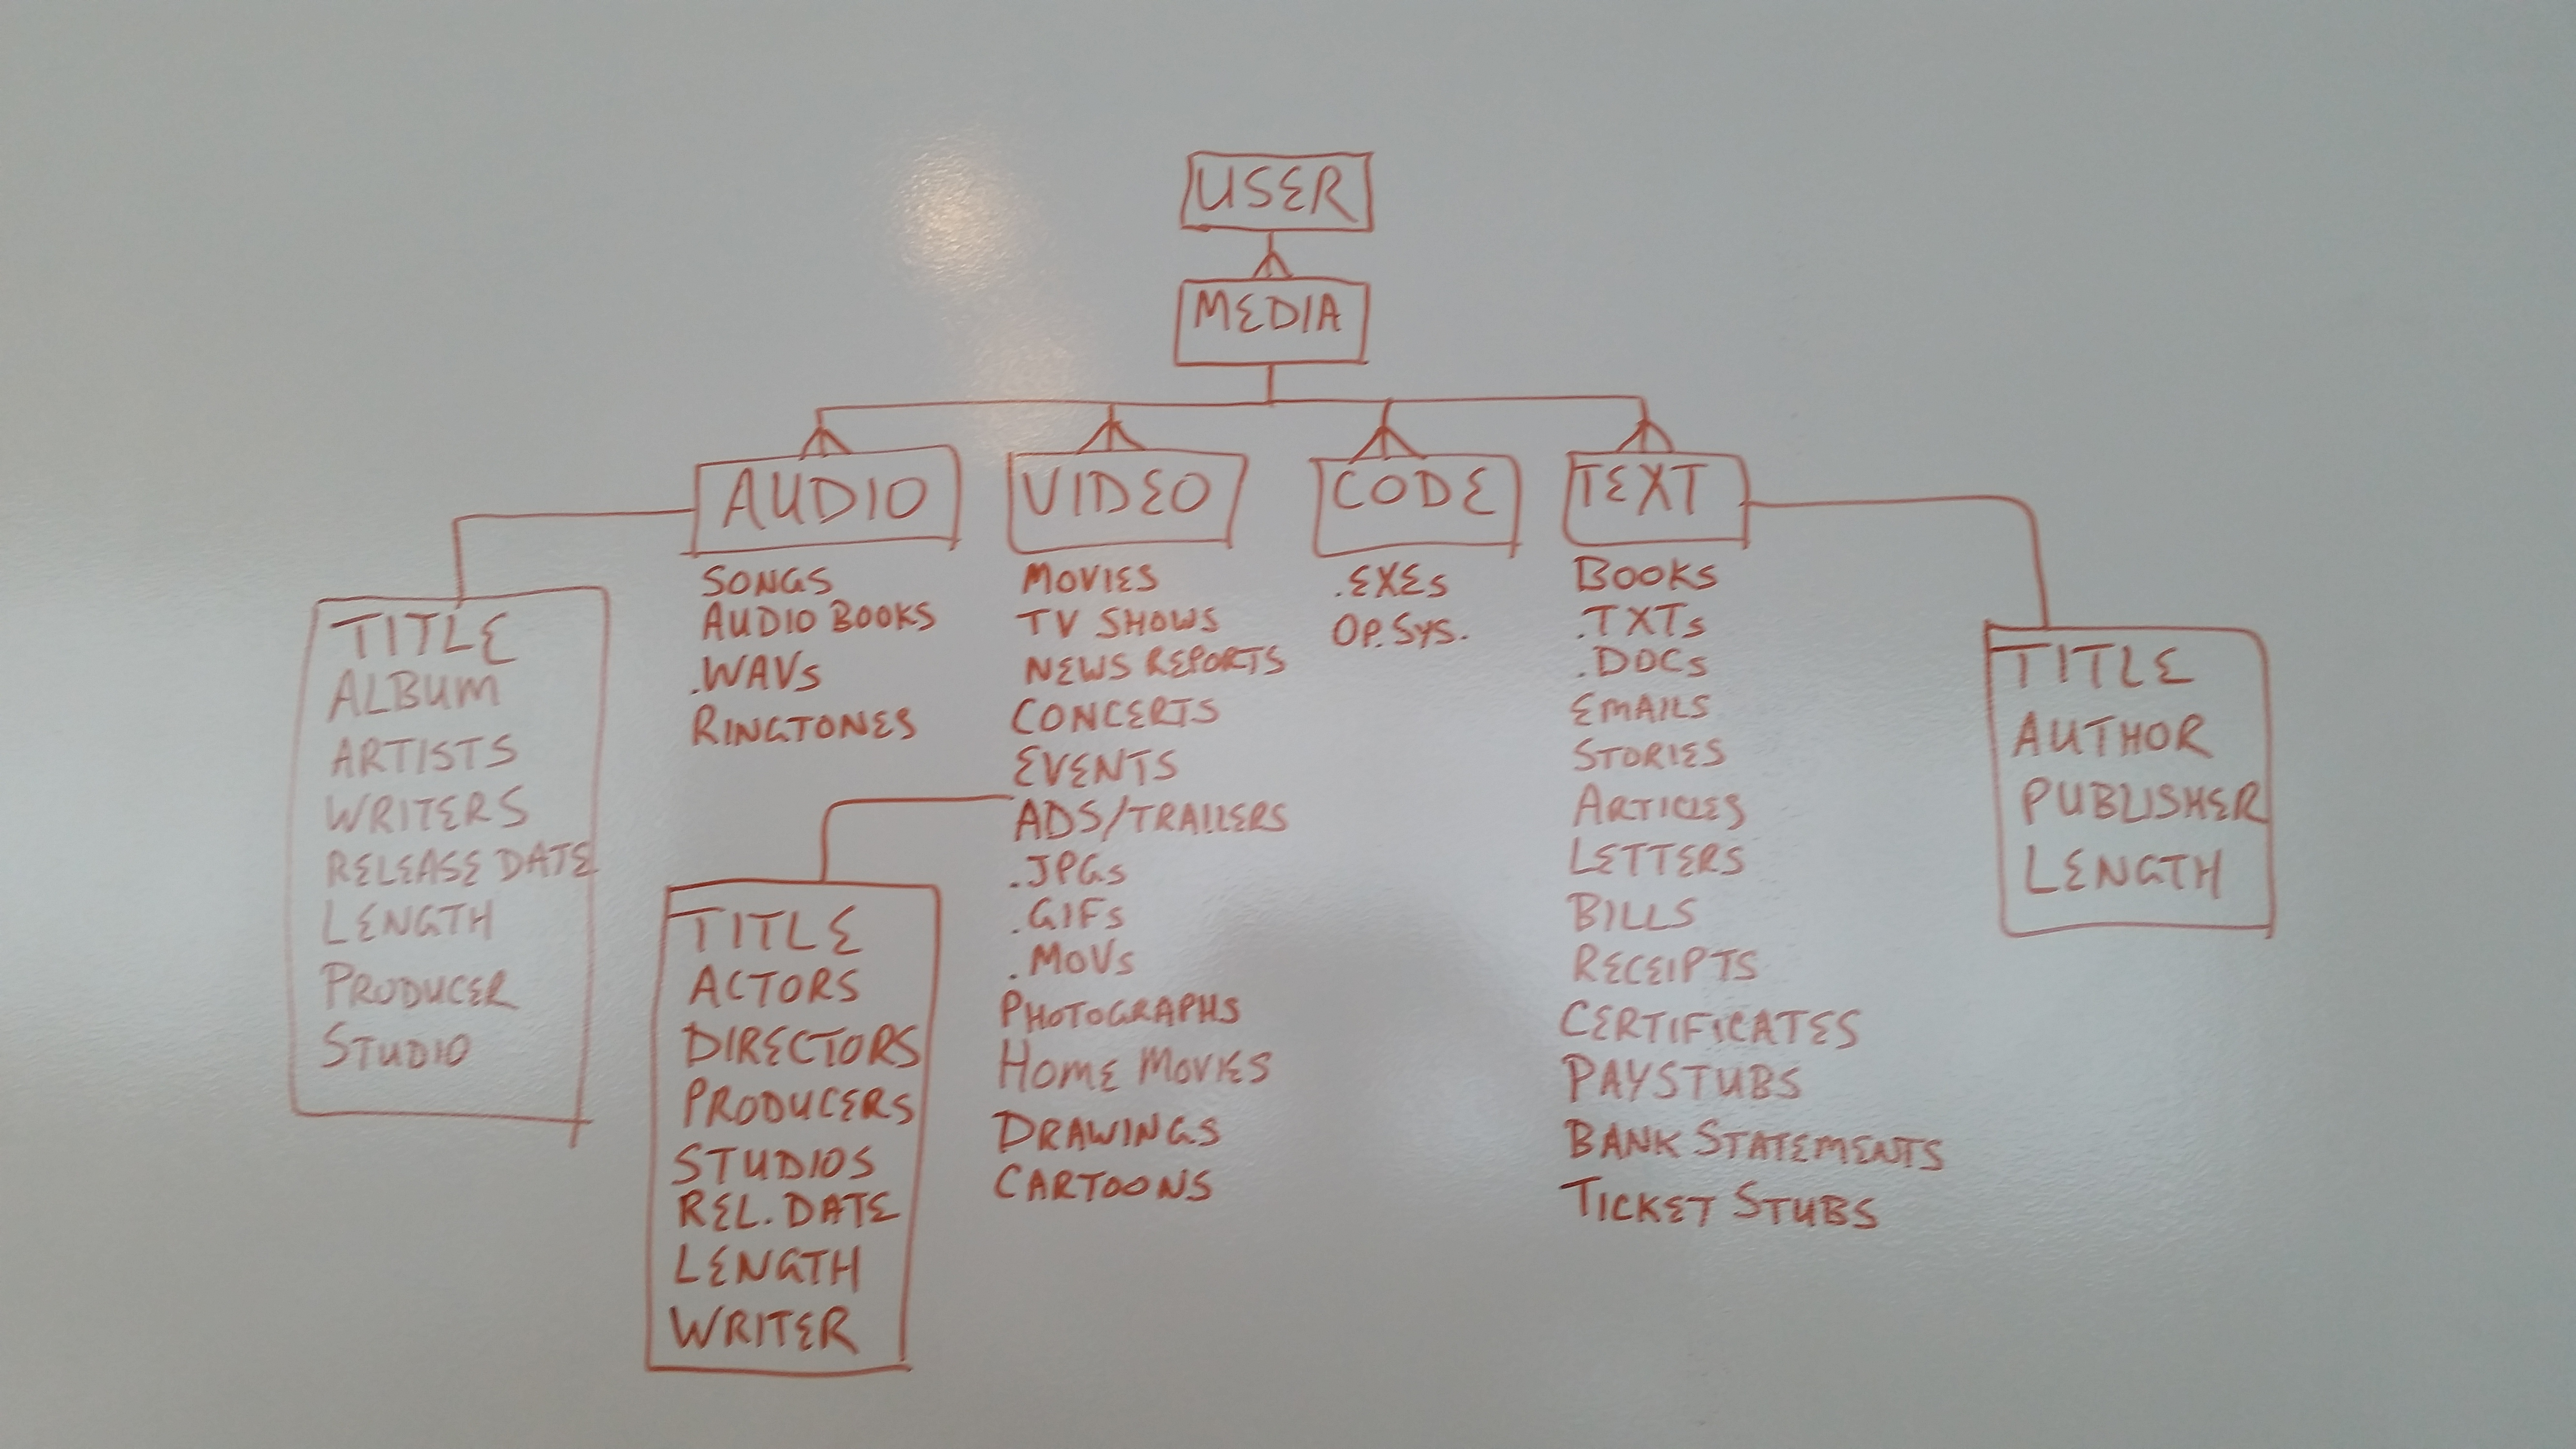 USER
MEDIA
AUDIO
SONGS
AUDIO BOOKS
.WAVs
RINGTONES
TITLE
ALBUM
ARTISTS
WRITERS
RELEASE DATE
LENGTH
PRODUCER
STUDIO
VIDEO
MOVIES
TV SHOWS
NEWS REPORTS
CONCERTS
EVENTS
ADS/TRAILERS
.JPGs
.GIFs
.MOVs
PHOTOGRAPHS
HOME MOVIES
DRAWINGS
CARTOONS
TITLE
ACTORS
DIRECTORS
PRODUCERS
STUDIOS
REL. DATE
LENGTH
WRITER
CODE
.EXEs
OP. SYS.
TEXT
BOOKS
.TXTs
.DOCs
EMAILS
STORIES
ARTICLES
LETTERS
BILLS
RECEIPTS
CERTIFICATES
PAYSTUBS
BANK STATEMENTS
TICKET STUBS
TITLE
AUTHOR
PUBLISHER
LENGTH